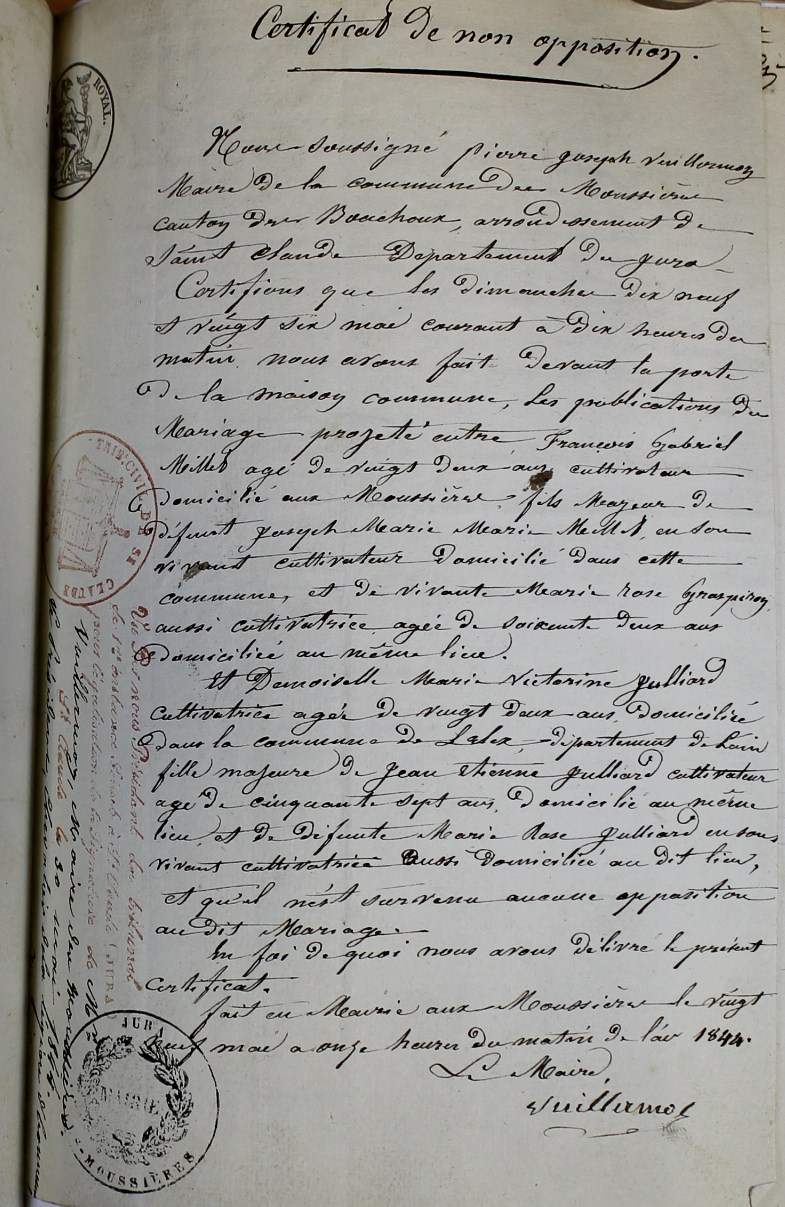 Certificat de non opposition.
ROYAL.
Nous soussigné pierre joseph Vuillermoz
Maire de la commune des Moussières
canton des Bouchoux, arrondissement de
Saint Claude Département du jura
Certifions que les dimanches dix neuf
et vingt six mai courant à dix heures du
matin nous avons fait devant la porte
de la maison commune, les publications du
Mariage projeté entre François Gabriel
Millet agé de vingt deux ans cultivateur
domicilié aux Moussières, fils Majeur de
défunt joseph Marie Marie Millet, en son
vivant cultivateur domicilié dans cette
commune, et de vivante Marie rose Grospiron
aussi cultivatrice agée de soixante deux ans
domiciliée au même lieu.
Et Demoiselle Marie Victorine julliard
cultivatrice agée de vingt deux ans domiciliée
dans la commune de Lelex, département de Lain
fille majeure de jean Etienne julliard cultivateur
agé de cinquante sept ans, domicilié au même
lieu, et de défunte Marie Rose julliard en son
vivant cultivatrice aussi domiciliée au dit lieu,
et qu'il n'est survenu aucune opposition
au dit Mariage.
En foi de quoi nous avons délivré le présent
Certificat.
fait en Mairie aux Moussières le vingt
neuf mai a onze heures du matin de l'an 1844.
Le Maire,
Vuillermoz
TRIB. CIVIL DE ST CLAUDE
Vu par nous Président du tribunal
de 1re instance séant à St Claude (JURA
pour légalisation de la signature de Mr
Vuillermoz, Maire des Moussières.
St Claude le 30 mai 1844.
JURA
MAIRIE
MOUSSIÈRES